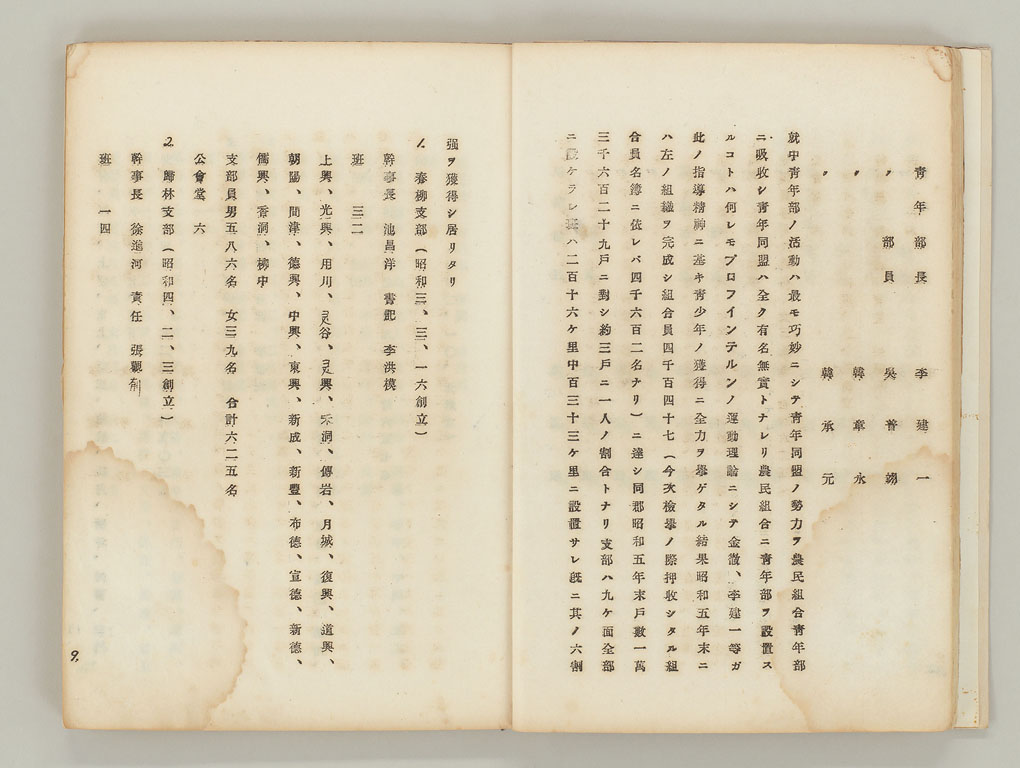 青年部長 李建一
〃 部員 吳善翊
〃 韓章永
〃 韓承元
就中青年部ノ活動ハ最モ巧妙ニシテ青年同盟ノ勢力ヲ農民組合青年部
ニ吸收シ青年同盟ハ全ク有名無實トナレリ農民組合ニ青年部ヲ設置ス
ルコトハ何レモプロフインテルンノ運動理論ニシテ金澈、李建一等ガ
此ノ指導精神ニ基キ青少年ノ獲得ニ全力ヲ擧ゲタル結果昭和五年末ニ
ハ左ノ組織ヲ完成シ組合員四千百四十七(今次檢擧ノ際押收シタル組
合員名簿ニ依レバ四千六百二名ナリ)ニ達シ同郡昭和五年末戶數一萬
三千六百二十九戶ニ對シ約三戶ニ一人ノ割合トナリ支部ハ九ケ面全部
ニ設ケラレ班ハ二百十六ケ里中百三十三ケ里ニ設置サレ既ニ其ノ六割
强ヲ獲得シ居リタリ
1. 春柳支部(昭和三、三、一六創立)
幹事長 池昌洋 書記 李洪模
班 三二
上興、光興、用川、灵谷、灵興、禾洞、傳岩、月城、復興、道興、
朝陽、間津、德興、中興、東興、新成、新豐、布德、宣德、新德、
儒興、香洞、柳中
支部員男五八六名 女三九名 合計六二五名
公會堂 六
2. 歸林支部(昭和四、二、三創立)
幹事長 徐進河 責任 張觀
班 一四
9.